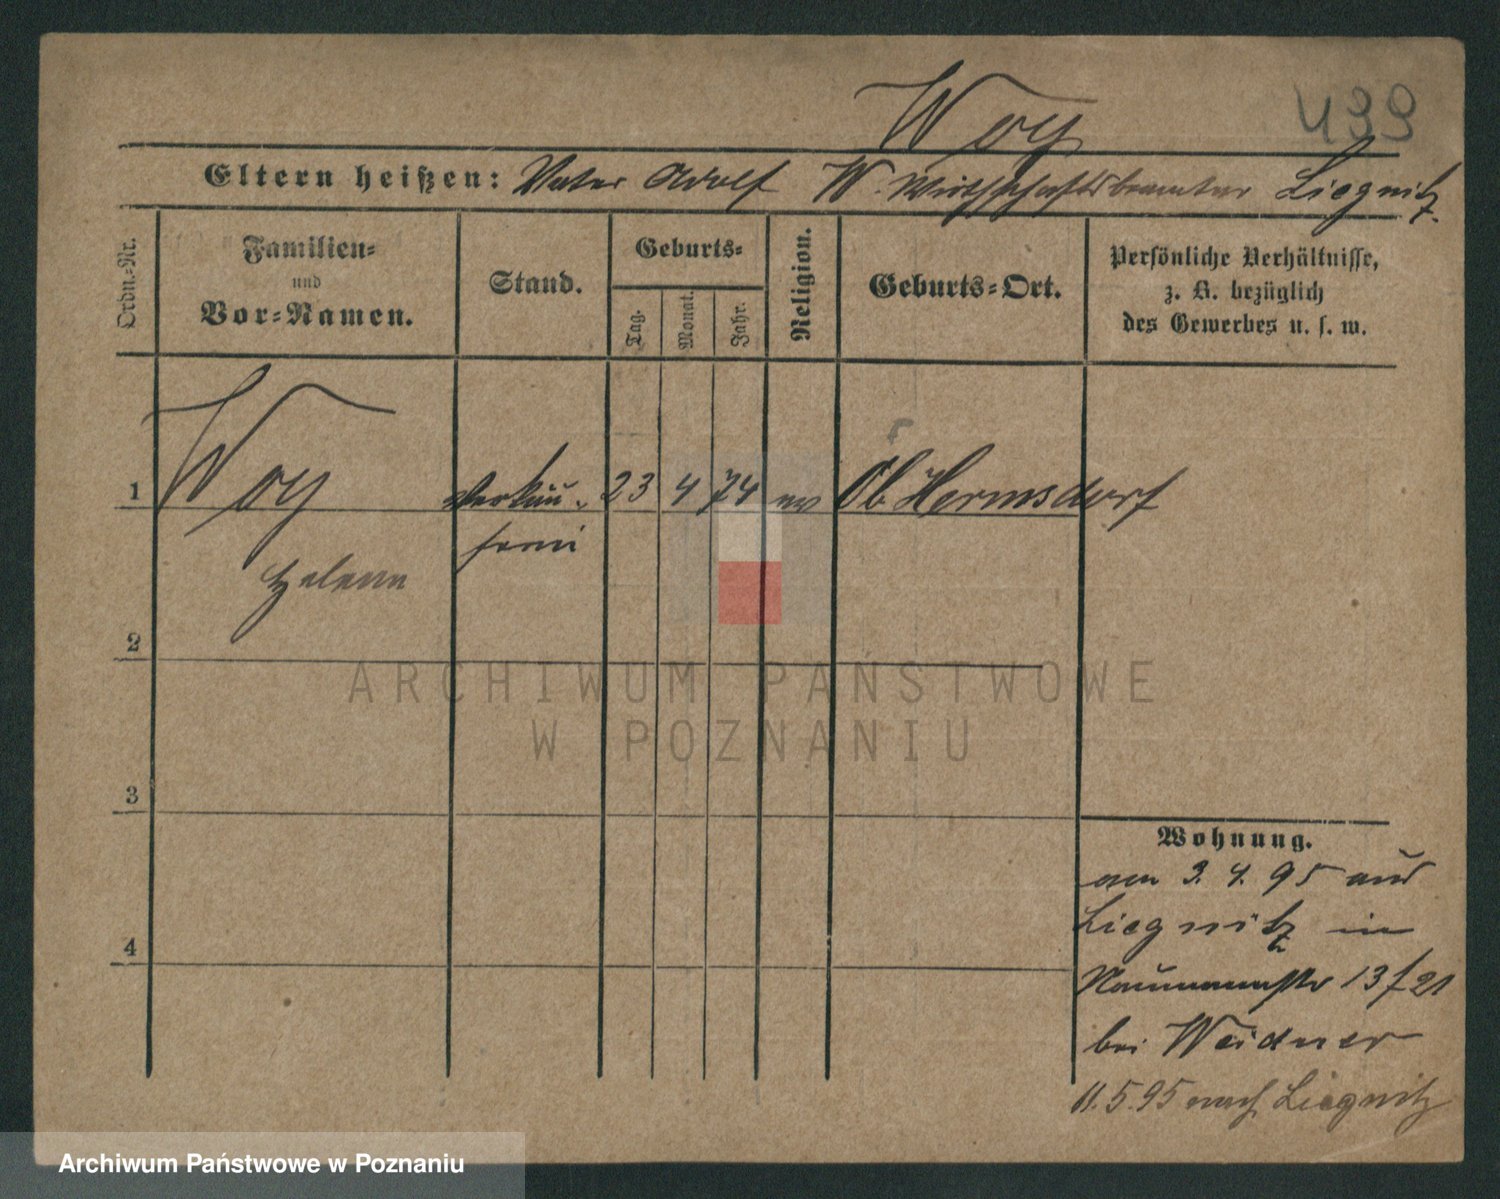 Woy
499
Eltern heißen: Vater Adolf W. Wirthschaftsbeamter Liegnitz.
Ordn.-Nr.
Familien-
und
Vor-Namen.
Stand.
Geburts-
Tag.
Monat.
Jahr.
Religion.
Geburts-Ort.
Persönliche Verhältnisse,
z. B. bezüglich
des Gewerbes u. s. w.
1 Woy Verkäu- 23 4 74 ev Ob Hermsdorf
ferin
Helene
2
ARCHIWUM PAŃSTWOWE
W POZNANIU
3
Wohnung.
am 3. 4. 95 aus
Liegnitz in
Naumannstr 13
bei Weidner
11. 5. 95 nach Liegnitz
4
Archiwum Państwowe w Poznaniu